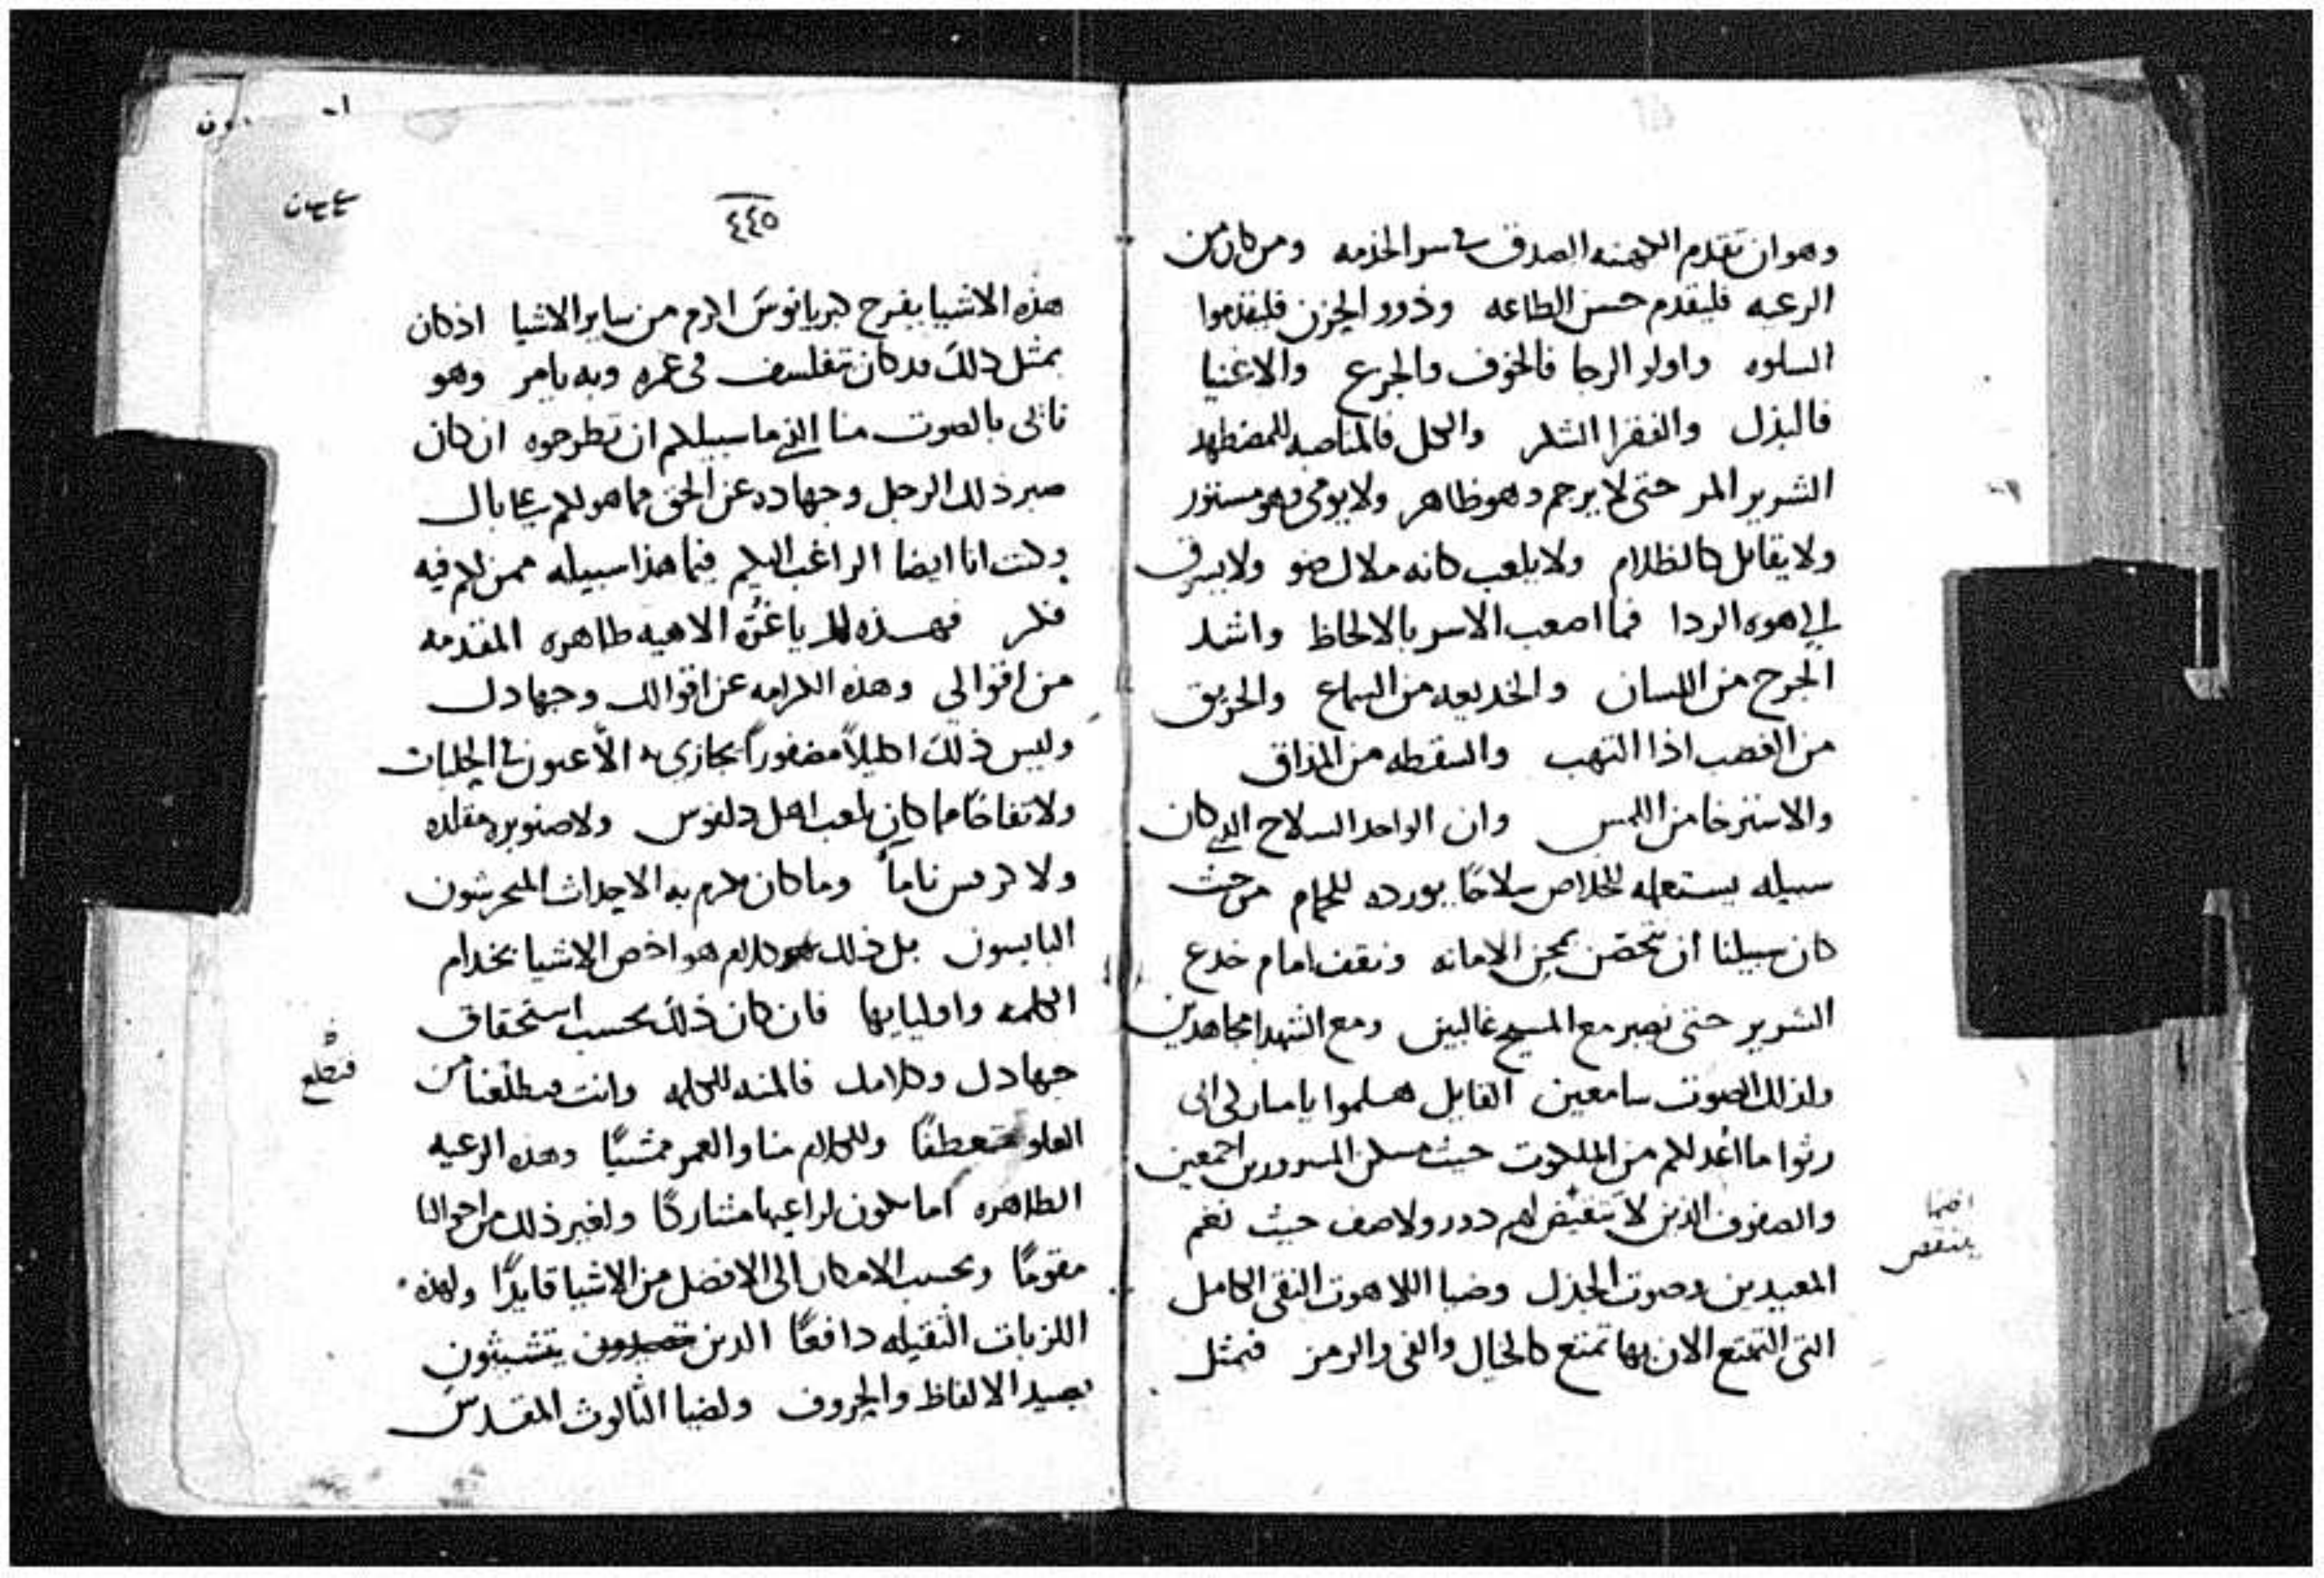 وهو ان تقدم الكهنه الصدق في سر الخدمه ومن كان من
الرعيه فليقدم حسن الطاعه وذوو الحزن فليقدموا
السلوه واولو الرجا فالخوف والجزع والاغنيا
فالبذل والفقرا الشكر والكل فالمناصبه للمضطهد
الشرير المر حتى لا يرجم وهو ظاهر ولا يومى وهو مستتور
ولا يقاتل كالظلام ولا يلعب كانه ملاك ضو ولا يسرق
الى هوه الردا فما اصعب الاسر بالالحاظ واشد
الجرح من اللسان والخديعه من السماع والحريق
من الغضب اذا التهب والسقطه من المذاق
والاسترخا من اللمس وان الواحد السلاح الدي كان
سبيله يستعمله للخلاص سلاحًا يورده للحمام من حيث
كان سبيلنا ان نتحصن بمجن الامانه ونقف امام خدع
الشرير حتى نصير مع المسيح غالبين ومع الشهدا مجاهدين
ولذلك الصوت سامعين القايل هلموا يا مباركى ابى
رثوا ما اُعد لكم من الملكوت حيث مسكن المسرورين اجمعين
والصفوف الذين لا تنقيض لهم دور ولا صف حيث نغم
المعيدين وصوت الجذل وضيا اللاهوت النقى الكامل
التى التمتع الان بها تمتع كالخيال والفى والرمز فبمثل
ايضا
ينتقص
٤٤٥
هذه الاشيا يفرح كبريانوس اكرم من ساير الاشيا اذ كان
بمثل ذلك قد كان تفلسف في عمره وبه يامر وهو
نائى بالصوت منا الذي ما سبيلكم ان تطرحوه ان كان
صبر ذلك الرجل وجهاده عن الحق مما هو لكم على بال
وكنت انا ايضا الراغب اليكم فيما هذا سبيله ممن لكم فيه
فكر فهذه لك ياغُرَّه الاهيه طاهره المقدمه
من اقوالى وهذه الكرامه عن اقوالك وجهادك
وليس ذلك اكليلاً مضفوراً يجازى به الاعبون في الحلبات
ولا تفاحًا مما كان يلعب اهل دلفوس ولا صنوبره مقلده
ولا كرفس ناماً وما كان يكرم به الاحداث المحرشون
البايسون بل ذلك كلام هو اخص الاشيا بخدام
الكلمه واوليايها فان كان ذلك بحسب استحقاق
جهادك وكلامك فالمنه للكلمه وانت فتطلعنا من
فتطلع
العلو متعطفًا وللكلام منا والعمر ممشيًا وهذه الرعيه
الطاهره اما تكون لراعيها مشاركًا ولغير ذلك من احوالنا
مقومًا وبحسب الامكان الى الافضل من الاشيا قايدًا ولهذه
اللزبات الثقيله دافعًا الدين يتشبثون
بصيد الالفاظ والحروف ولضيا الثالوث المقدس